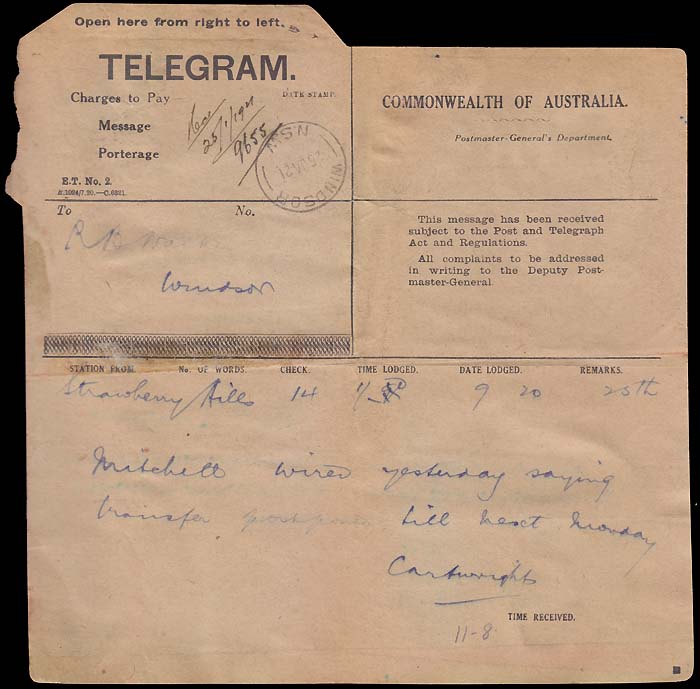 Open here from right to left.
TELEGRAM.
Charges to Pay
Message
Porterage
DATE STAMP.
25/1/1921
9655
WINDSOR N.S.W
E.T. No. 2.
COMMONWEALTH OF AUSTRALIA.
Postmaster-General's Department.
To No.
R B
Windsor
This message has been received
subject to the Post and Telegraph
Act and Regulations.
All complaints to be addressed
in writing to the Deputy Post-
master-General.
STATION FROM. No. OF WORDS. CHECK. TIME LODGED. DATE LODGED. REMARKS.
Strawberry Hills 14 9 20 25th
Mitchell wired yesterday saying
transfer postponed till next Monday
Cartwright
TIME RECEIVED.
11-8